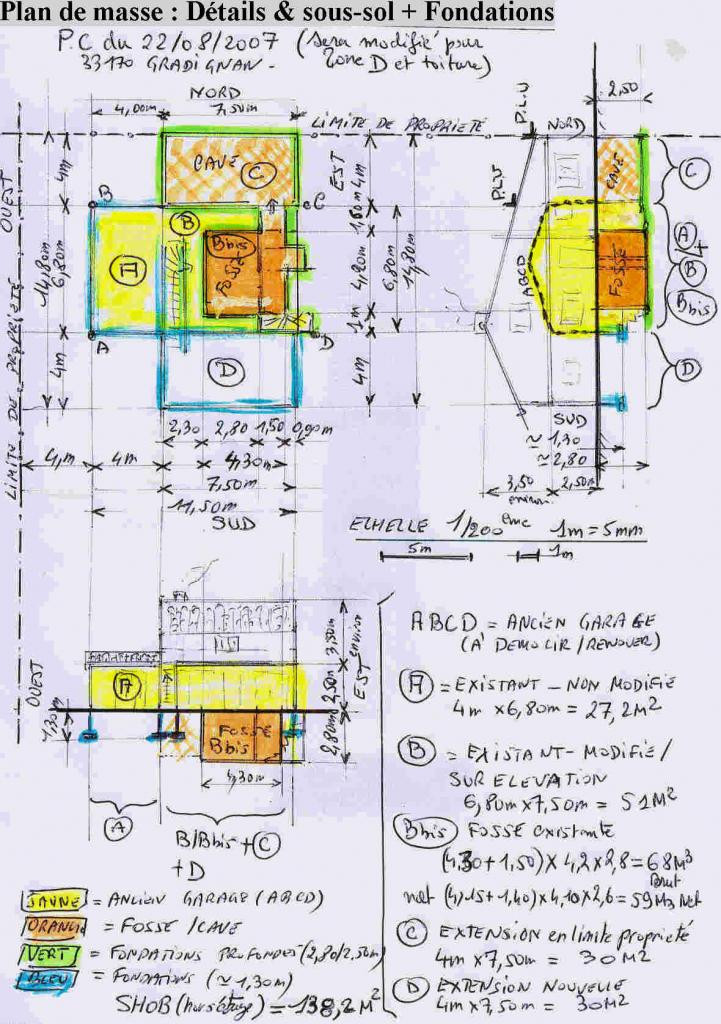 Plan de masse : Détails & sous-sol + Fondations
P.C du 22/08/2007 (sera modifié pour
33170 GRADIGNAN - zone D et toiture)
NORD
4,00m 7,50m
LIMITE DE PROPRIETE
P.L.U
NORD
2,50
OUEST
4m
CAVE C
EST
4m
PLU
CAVE
C
B
B
C
1,80m
14,80m
6,80m
A
Bbis
FOSSE
4,20m
6,80m
14,80m
ABCD
FOSSE
A
+
B
Bbis
1m
A
D
4m
D
4m
D
LIMITE DE PROPRIETE
2,30 2,80 1,50 0,90m
4m 4m 4,30m
7,50m
11,50m
SUD
SUD
≃ 1,30
≃ 2,80
3,50 2,50m
environ
ECHELLE 1/200 eme 1m = 5mm
5m 1m
OUEST
A
3,50m environ
2,50m
EST
1,30m
FOSSE
Bbis
2,80m
4,30m
A
B/Bbis + C
+ D
ABCD = ANCIEN GARAGE
(A' DEMOLIR / RENOVER)
A = EXISTANT - NON MODIFIE
4m x 6,80m = 27,2M²
B = EXISTANT - MODIFIE /
SUR ELEVATION
6,80m x 7,50m = 51M²
Bbis FOSSE existante
(4,30 + 1,50) x 4,2 x 2,8 = 68M³
Brut
net (4,15 + 1,40) x 4,10 x 2,6 = 59M3 Net
C EXTENSION en limite proprieté
4m x 7,50m = 30M²
D EXTENSION NOUVELLE
4m x 7,50m = 30M²
JAUNE = ANCIEN GARAGE (ABCD)
ORANGE = FOSSE / CAVE
VERT = FONDATIONS PROFONDES (2,80/2,50m)
BLEU = FONDATIONS (≃ 1,30m)
SHOB (hors étage) = 138,2M²